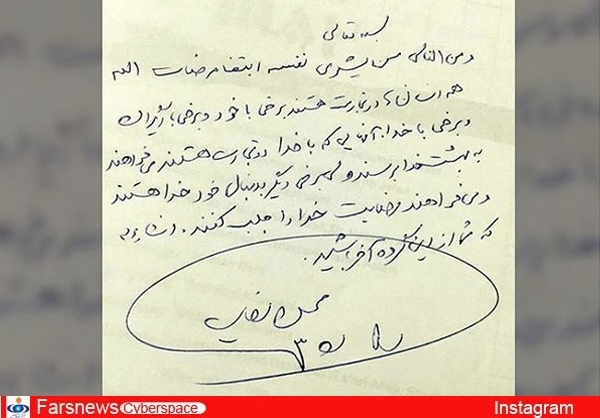 بسمه تعالی
و من الناس من یشری نفسه ابتغاء مرضات الله
همه انسان ها در تجارت هستند برخی با خود و برخی با دیگران
و برخی با خدا آنهایی که با خدا در تجارت هستند می خواهند
به بهشت خدا برسند و برخی دیگر بدنبال خود خدا هستند
و می خواهند رضایت خدا را جلب کنند. انشاءاله
که شما از این گروه آخر باشید.
محسن رضایی
Farsnews Cyberspace Instagram